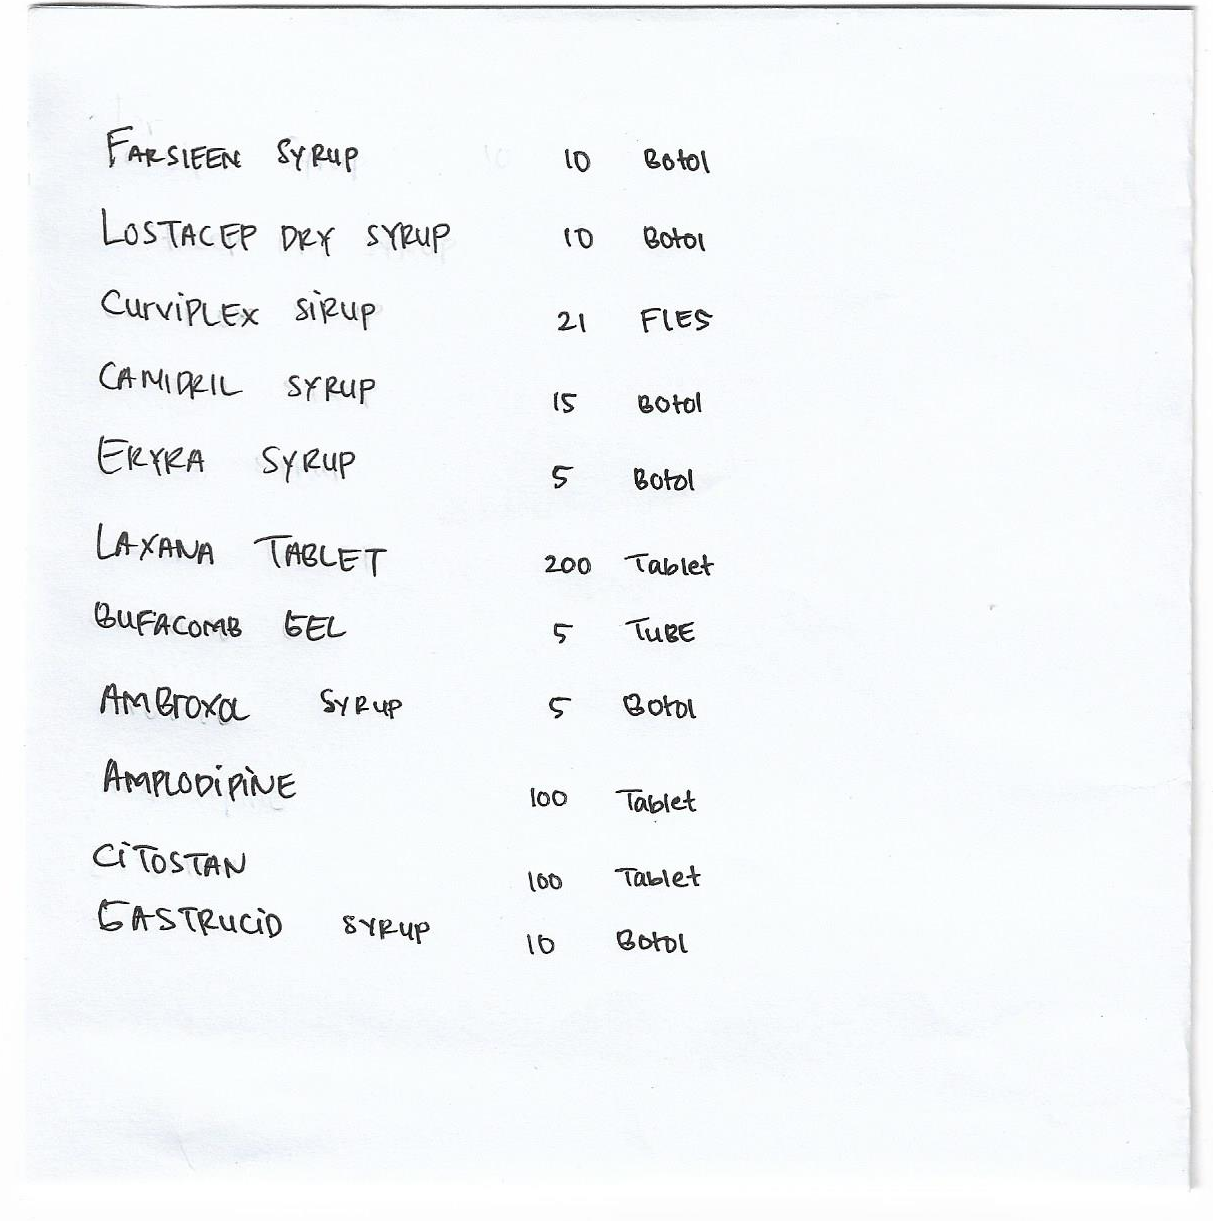 FARSIEEN SYRUP 10 Botol
LOSTACEP DRY SYRUP 10 Botol
CurviPLEX SiRUP 21 FlES
CAMIDRIL SYRUP 15 Botol
ERYRA SYRUP 5 Botol
LAXANA TABLET 200 Tablet
BUFACOMB GEL 5 TUBE
AMBroxol SYRUP 5 Botol
AMPLODiPiNE 100 Tablet
CiTOSTAN 100 Tablet
GASTRUCiD SYRUP 10 Botol